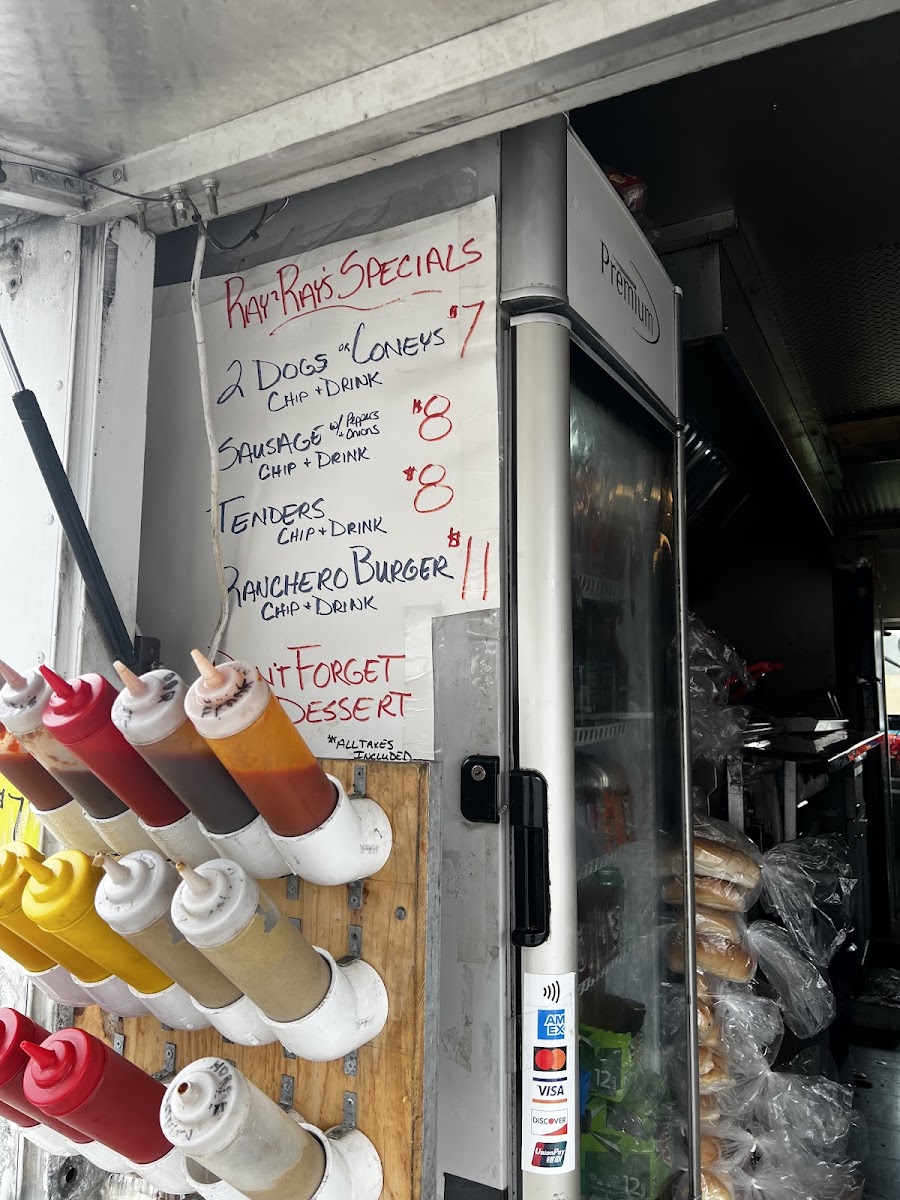 RAY RAY'S SPECIALS
2 DOGS OR CONEYS $7
CHIP + DRINK
SAUSAGE w/ PEPPERS + ONIONS $8
CHIP + DRINK
TENDERS $8
CHIP + DRINK
RANCHERO BURGER $11
CHIP + DRINK
N'T FORGET
DESSERT
*ALL TAXES
INCLUDED
Premium
AM
EX
VISA
DISCOVER
UnionPay
银联
12
12